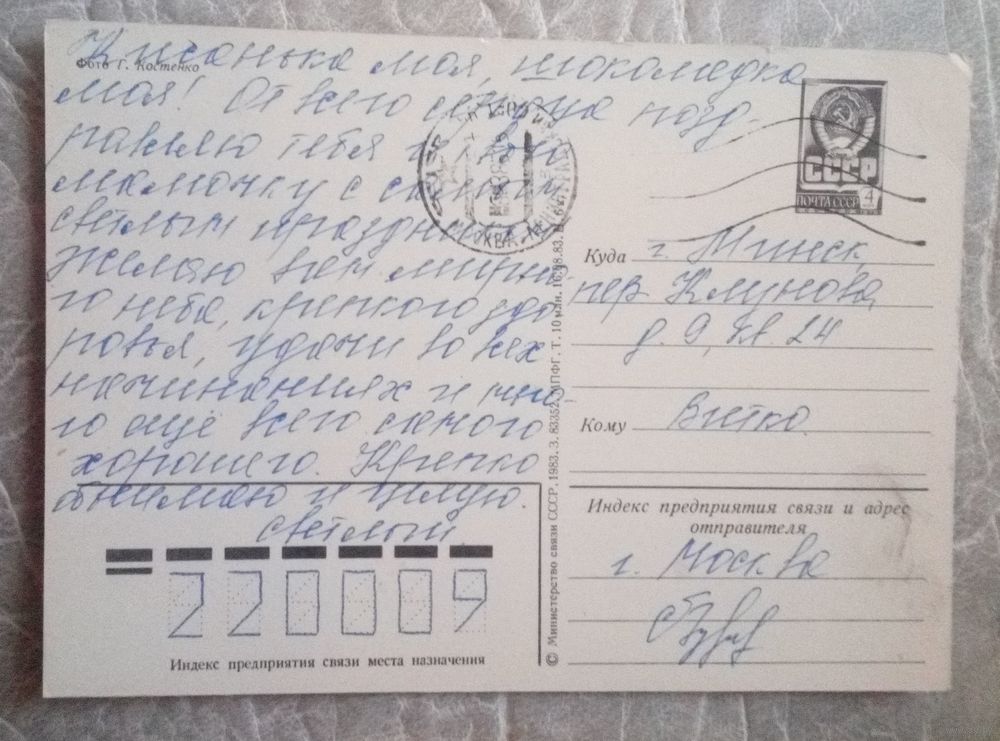 Кисанька моя, шоколадка
Фото Г. Костенко
моя! От всего сердца позд-
равляю тебя и твою
мамочку с самым
светлым праздником
Желаю вам мирно-
го неба, крепкого здо
ровья, удачи во всех
начинаниях и мно-
го ещё всего самого
хорошего. Крепко
обнимаю и целую.
светлый.
СССР
ПОЧТА СССР 4
МОСКВА
Куда г. Минск,
пер. Клумова,
д. 9, кв. 24
Кому Витко
Индекс предприятия связи и адрес
отправителя
г. Москва
220009
Индекс предприятия связи места назначения
© Министерство связи СССР, 1983. З. 83352. МПФГ. Т. 10 млн. 16.08.83.